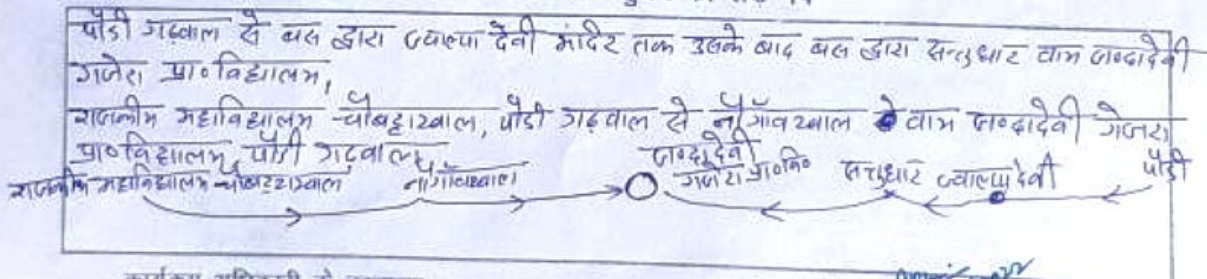 पौडी गढ़वाल से बस द्वारा ज्वाल्पा देवी मंदिर तक उसके बाद बस द्वारा सन्तुधार वाम जणदादेवी
गजेरा प्रा० विद्यालय,
राजकीय महाविद्यालय चौबट्टाखाल, पौडी गढ़वाल से नौगाँवखाल वाम जणदादेवी गेजरा
प्रा० विद्यालय, पौडी गढ़वाल
राजकीय महाविद्यालय चौबट्टाखाल नौगाँवखाल जणदादेवी गजेरा प्रा० वि० सन्तुधार ज्वाल्पा देवी पौडी